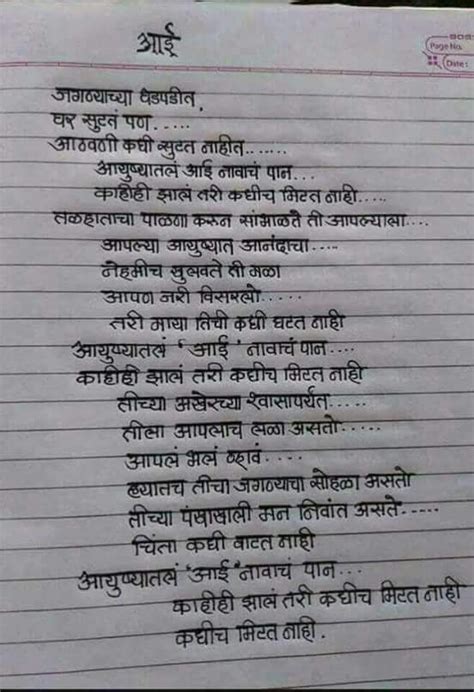 आई
Page No.
Date :
जगण्याच्या धडपडीत,
घर सुटतं पण.....
आठवणी कधी सुटत नाहीत......
आयुष्यातलं आई नावाचं पान...
काहीही झालं तरी कधीच मिटत नाही....
तळहाताचा पाळणा करुन सांभाळते ती आपल्याला....
आपल्या आयुष्यात आनंदाचा.....
नेहमीच फुलवते ती मळा
आपण जरी विसरलो.....
तरी माया तिची कधी घटत नाही
आयुष्यातलं 'आई' नावाचं पान....
काहीही झालं तरी कधीच मिटत नाही
तीच्या अखेरच्या श्वासापर्यंत.....
तीला आपलाच लळा असतो....
आपलं भलं व्हावं.....
ह्यातच तीचा जगण्याचा सोहळा असतो
तीच्या पंखाखाली मन निवांत असते.....
चिंता कधी वाटत नाही
आयुष्यातलं "आई" नावाचं पान...
काहीही झालं तरी कधीच मिटत नाही
कधीच मिटत नाही.